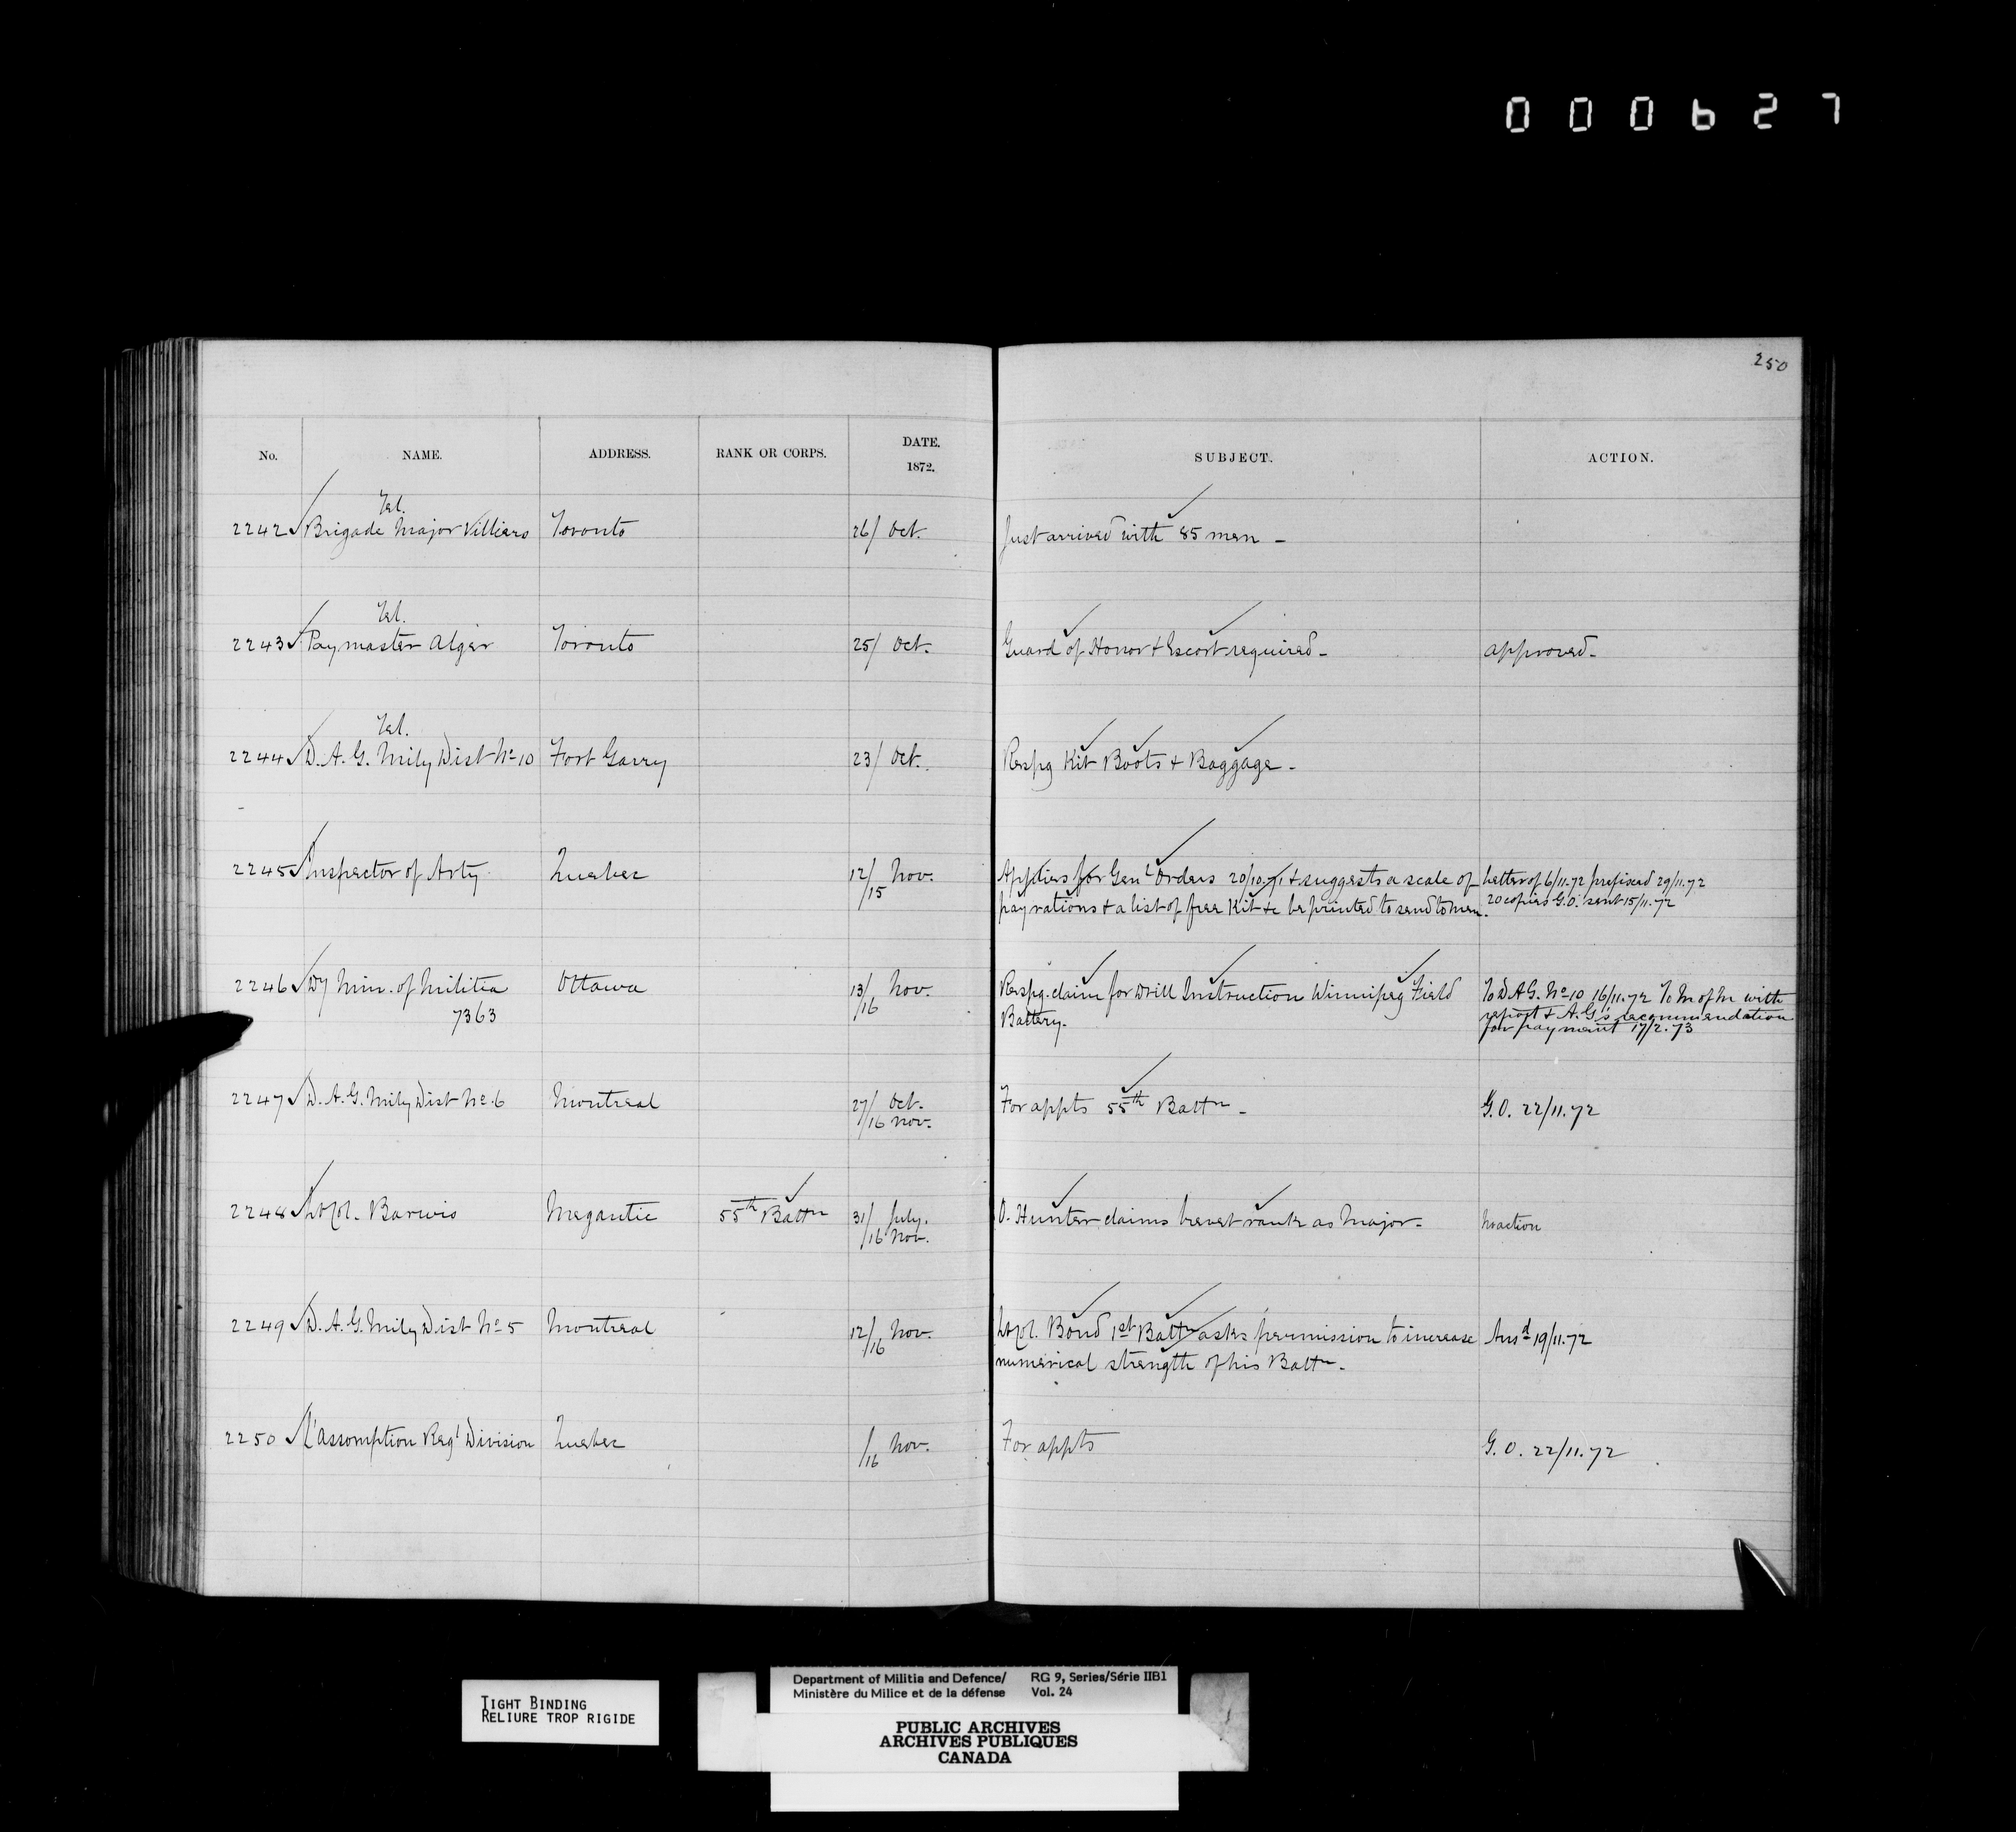 000627
250
No. NAME. ADDRESS. RANK OR CORPS. DATE. 1872. SUBJECT. ACTION.
Tel.
2242 Brigade Major Villiers Toronto 26/ Oct. Just arrived with 85 men -
Tel.
2243 Paymaster Alger Toronto 25/ Oct. Guard of Honor & Escort required - approved.
Tel.
2244 D. A. G. Mily Dist No 10 Fort Garry 23/ Oct. Respg Kit Boots & Baggage -
2245 Inspector of Arty Quebec 12/15 Nov. Applies for Genl Orders 20/10.71 & suggests a scale of Letter of 6/11.72 prefixed 29/11.72
pay rations & a list of free Kit &c be printed to send to men. 20 copies G.O. sent 15/11.72
2246 Dy Min. of Militia Ottawa 13/16 Nov. Respg. claim for Drill Instruction Winnipeg Field To D.A.G. No 10 16/11.72 To M of M with
7363 Battery. report & A.G's recommendation
for payment 17/2.73
2247 D. A. G. Mily Dist No. 6 Montreal 27/ Oct. For appts 55th Battn - G.O. 22/11.72
/16 Nov.
2248 Lt Col. Barwis Megantic 55th Battn 31/ July. O. Hunter claims brevet rank as Major - No action
/16 Nov.
2249 D. A. G. Mily Dist No 5 Montreal 12/16 Nov. Lt Col. Bond 1st Battn asks permission to increase Ansd 19/11.72
numerical strength of his Battn -
2250 L'assomption Regl Division Quebec /16 Nov. For appts G.O. 22/11.72
TIGHT BINDING
RELIURE TROP RIGIDE
Department of Militia and Defence/ RG 9, Series/Série IIB1
Ministère du Milice et de la défense Vol. 24
PUBLIC ARCHIVES
ARCHIVES PUBLIQUES
CANADA